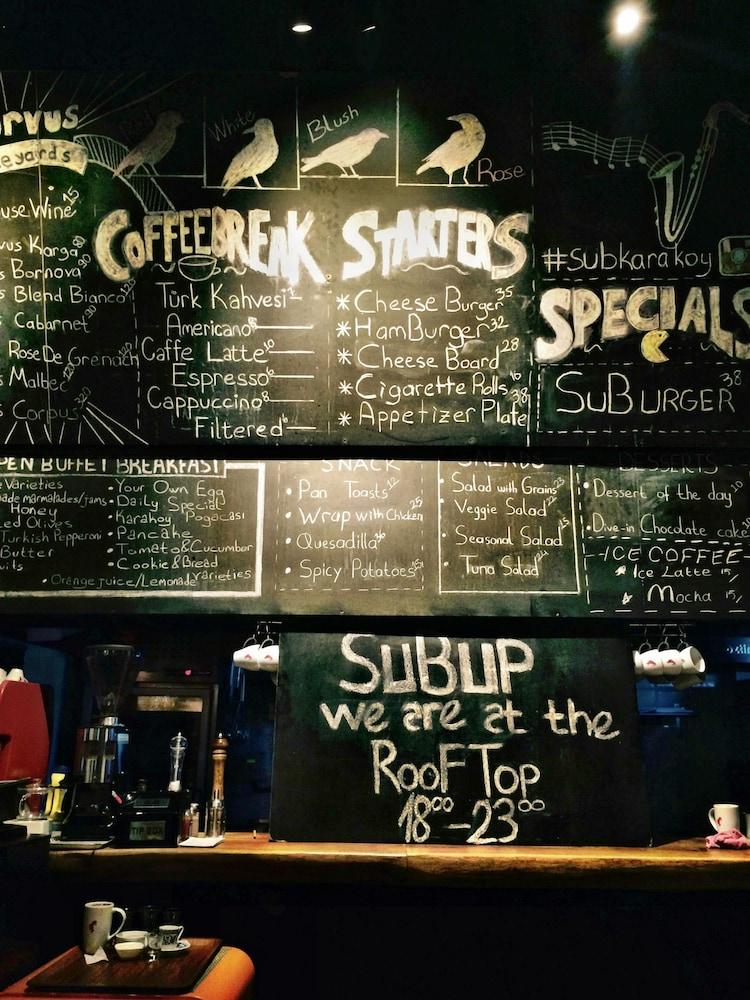 rvus
eyards
use Wine 15
vus Karga
s Bornova
s Blend Bianco
Cabarnet
Rose De Grenach
s Malbec
s Corpus
Red
White
Blush
Rose
COFFEEBREAK
Türk Kahvesi
Americano 8
Caffe Latte 10
Espresso 6
Cappuccino 8
Filtered 6
STARTERS
* Cheese Burger 35
* HamBurger 32
* Cheese Board 28
* Cigarette Rolls 16
* Appetizer Plate 38
#subkarakoy
SPECIALS
SUBURGER 38
PEN BUFFET BREAKFAST
e Varieties
ade marmalades/jams
Honey
ed Olives
Turkish Pepperoni
Butter
uits
• Your Own Egg
• Daily Special
• Karaköy Pogacası
• Pancake
• Tomato&Cucumber
• Cookie&Bread varieties
• Orange juice/Lemonade
SNACK
• Pan Toasts 12
• Wrap with Chicken 25
• Quesadilla
• Spicy Potatoes 15
SALADS
• Salad with Grains 23
• Veggie Salad 22
• Seasonal Salad 15
• Tuna Salad 24
DESSERTS
• Dessert of the day 10
• Dive-in Chocolate cake
-ICE COFFEE
Ice Latte 15/
Mocha 15/
SUBUP
we are at the
ROOFTOP
18°° - 23°°
TIP BOX